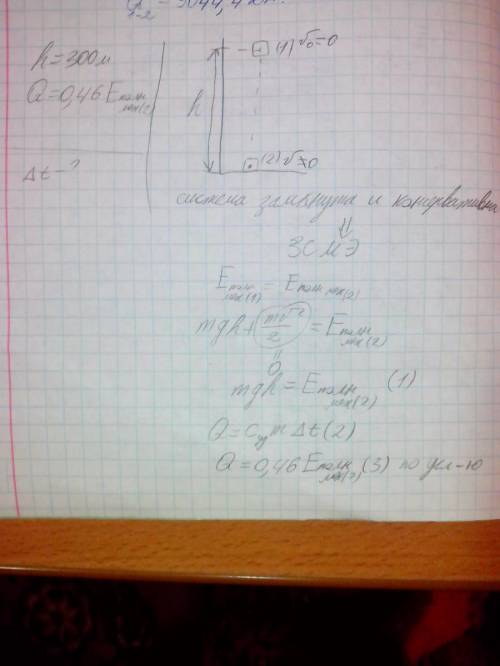 h = 300м
Q = 0,46 Eполн мех(2)
Δt - ?
(1) v₀ = 0
h
(2) v ≠ 0
система замкнута и консервативна
⇓
ЗСМЭ
Eполн мех(1) = Eполн мех(2)
mgh + mv²/2 = Eполн мех(2)
0
mgh = Eполн мех(2) (1)
Q = Cуд m Δt (2)
Q = 0,46 Eполн мех(2) (3) по усл-ю